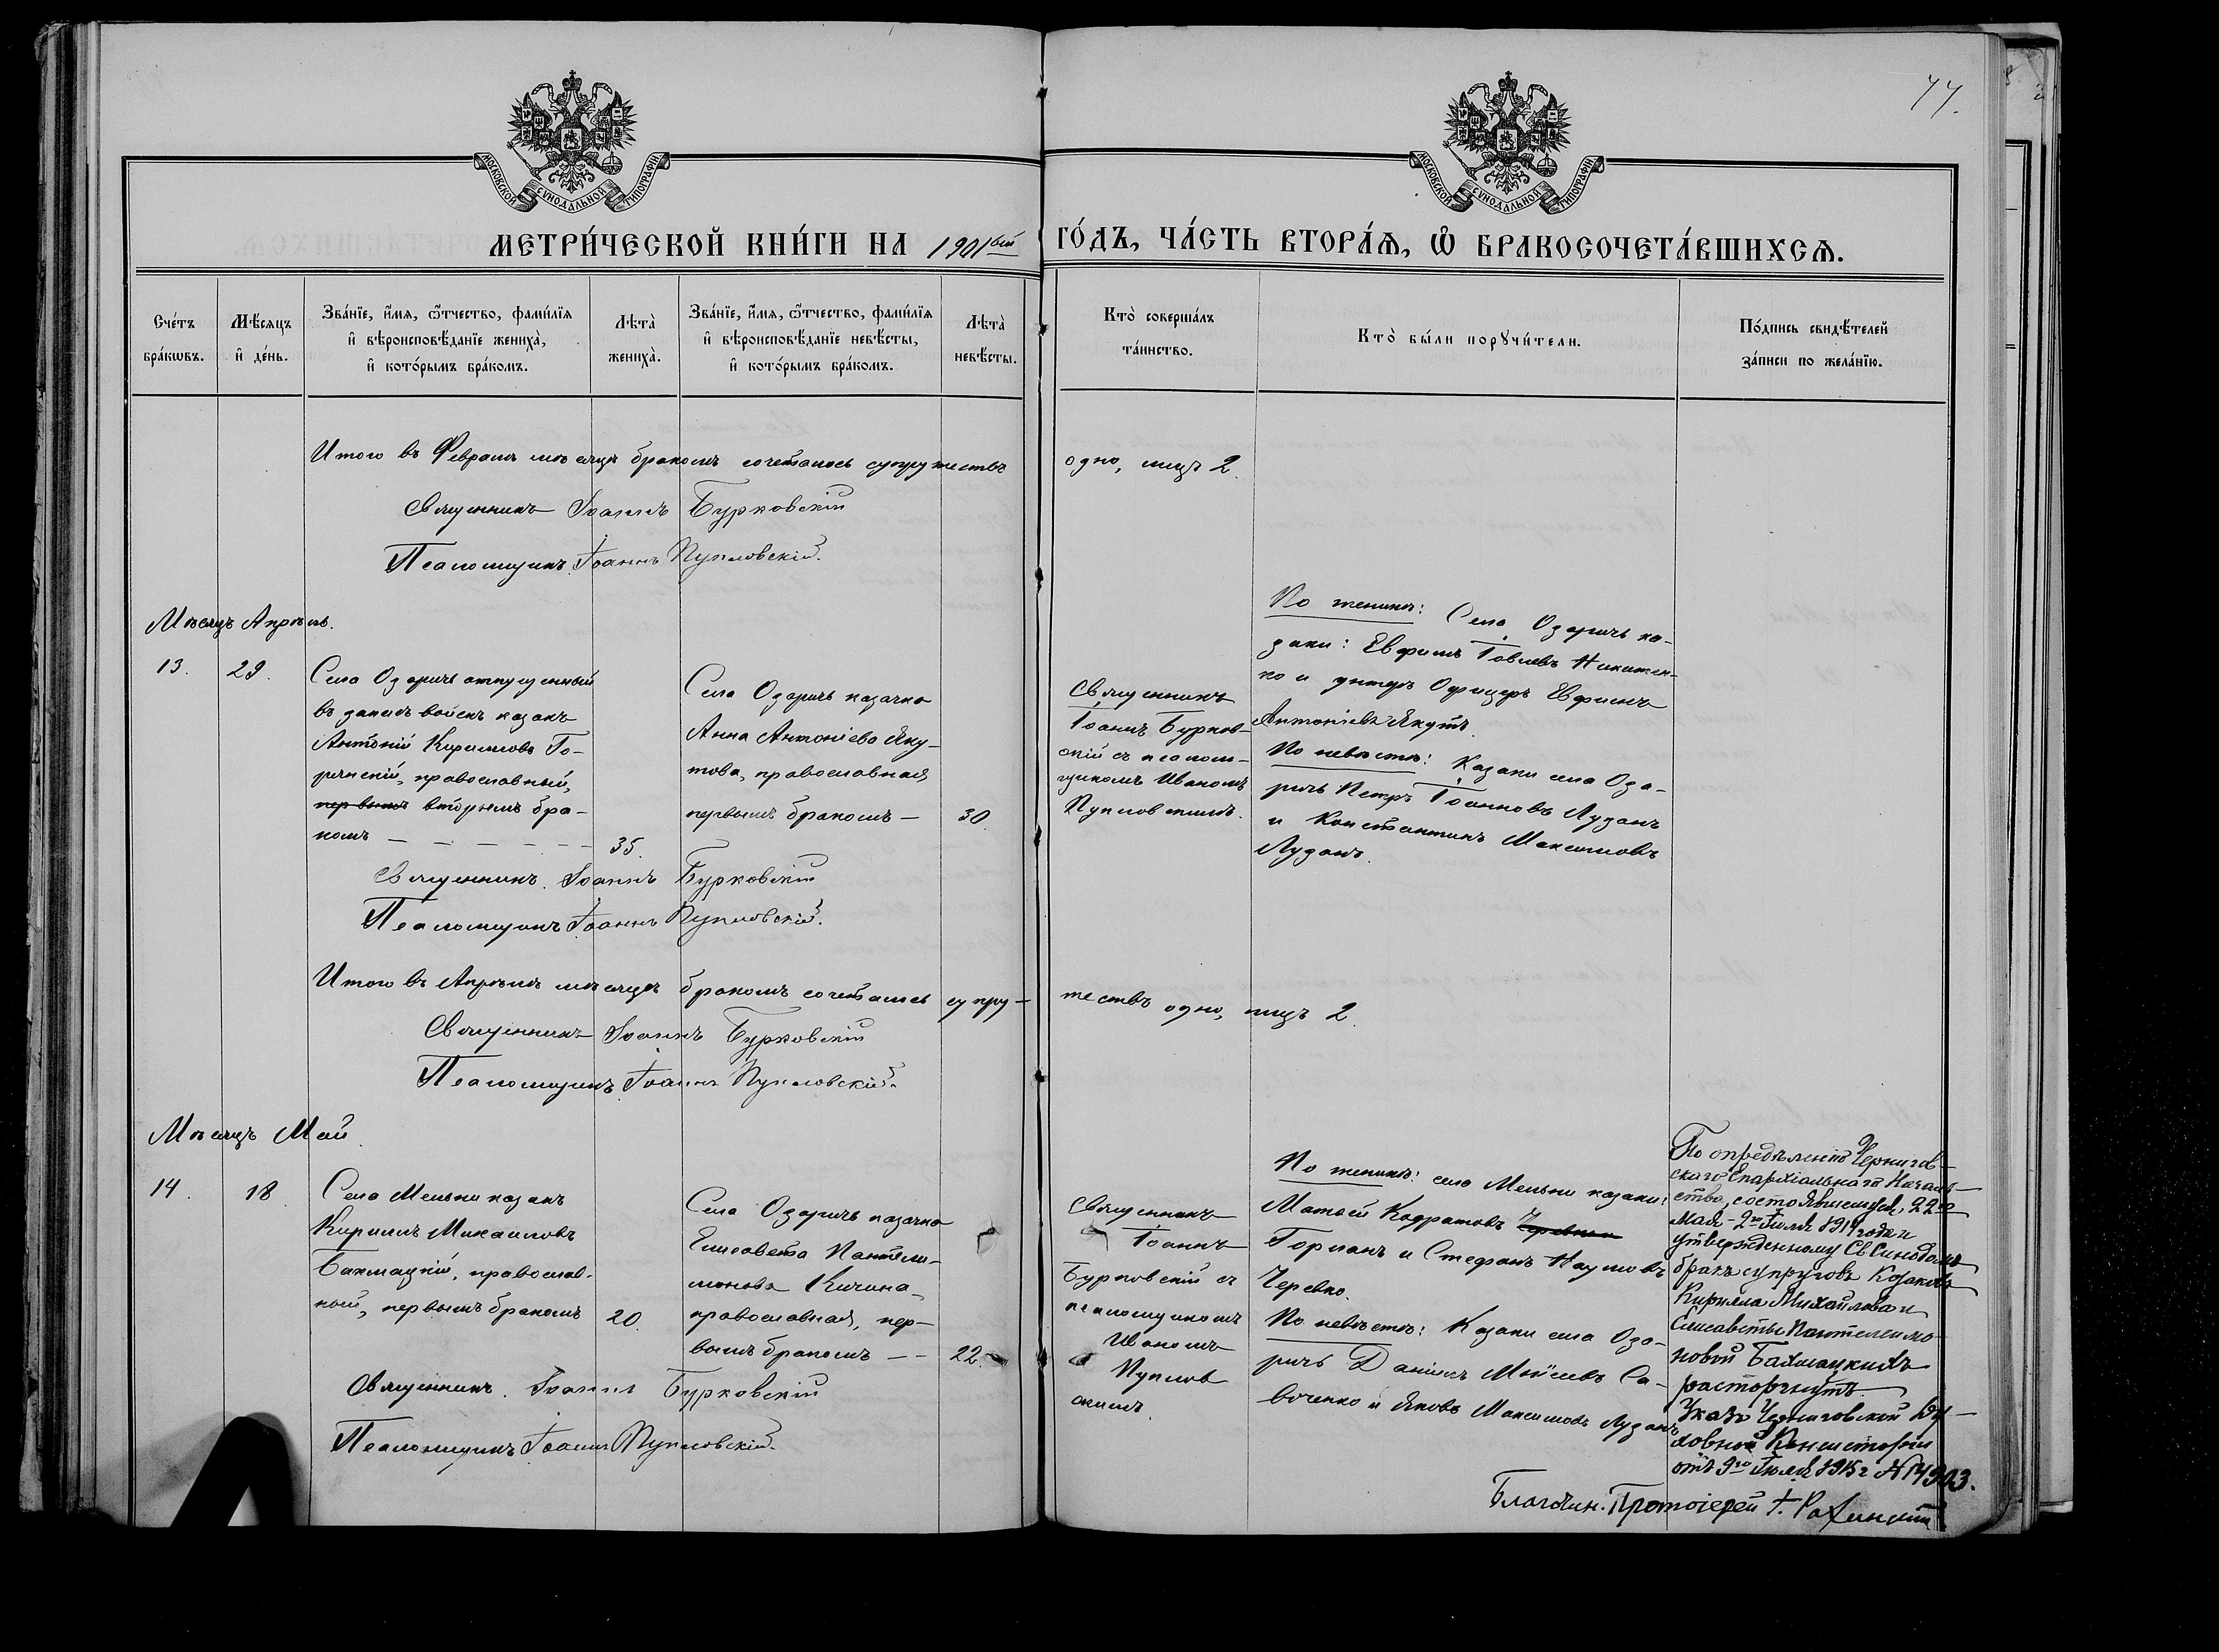 77.
МОСКОВСКОЙ СУНОДАЛЬНОЙ ТИПОГРАФІИ
МОСКОВСКОЙ СУНОДАЛЬНОЙ ТИПОГРАФІИ
МЕТРИ́ЧЕСКОЙ КНИ́ГИ НА 1901ый ГО́ДЪ, ЧА́СТЬ ВТОРА́Ѧ, Ѽ БРАКОСОЧЕТА́ВШИХСѦ.
Сче́тъ бра́кѡвъ.
Мѣ́сяцъ и҆ де́нь.
Зва́нїе, и҆́мѧ, ѻ҆́тчество, фами́лїѧ
и҆ вѣроисповѣ́данїе жениха̀,
и҆ кото́рымъ бра́комъ.
Лѣта̀ жениха̀.
Зва́нїе, и҆́мѧ, ѻ҆́тчество, фами́лїѧ
и҆ вѣроисповѣ́данїе невѣ́сты,
и҆ кото́рымъ бра́комъ.
Лѣта̀ невѣ́сты.
Кто̀ соверша́лъ та́инство.
Кто̀ бы́ли порꙋчи́тели.
По́дпись свидѣ́телей
за́писи по жела́нїю.
Итого въ Февралѣ мѣсяцѣ бракомъ сочеталось супружествъ одно, лицъ 2.
Священникъ Іоаннъ Бурковскій
Псаломщикъ Іоаннъ Пупловскій.
Мѣсяцъ Апрѣль.
13.
29.
Села Озаричъ отпущенный
въ запасъ войскъ казакъ
Антоній Кирилловъ Го-
ринскій, православный,
первымъ вторымъ бра-
комъ —
35.
Села Озаричъ казачка
Анна Антоніева Яку-
това, православная
первымъ бракомъ —
30.
Священникъ
Іоаннъ Бурков-
скій съ псалом-
щикомъ Иваномъ
Пупловскимъ.
По женихѣ: Села Озаричъ ка-
заки: Евфимъ Іовлевъ Никитен-
ко и унтеръ Офицеръ Евфимъ
Антоніевъ Якутъ.
По невѣстѣ: Казаки села Оза-
ричъ Петръ Іоанновъ Лузанъ
и Константинъ Максимовъ
Лузанъ.
Священникъ Іоаннъ Бурковскій
Псаломщикъ Іоаннъ Пупловскій.
Итого въ Апрѣлѣ мѣсяцѣ бракомъ сочеталось супру-жествъ одно, лицъ 2.
Священникъ Іоаннъ Бурковскій
Псаломщикъ Іоаннъ Пупловскій.
Мѣсяцъ Май.
14.
18
Села Мельни казакъ
Кириллъ Михаиловъ
Бахмацкій, православ-
ный, первымъ бракомъ
20.
Села Озаричъ казачка
Елисавета Пантели-
монова Кичина,
православная, пер-
вымъ бракомъ —
22.
Священникъ
Іоаннъ
Бурковскій съ
псаломщикомъ
Иваномъ
Пуплов
скимъ.
По женихѣ: села Мельни казаки:
Матѳей Кодратовъ Черевко
Горианъ и Стефанъ Наумовъ
Черевко.
По невѣстѣ: Казаки села Оза-
ричъ Даніилъ Моѵсеевъ Са-
воченко и Яковъ Максимовъ Лузанъ
По опредѣленію Чернигов-
скаго Епархіальнаго Началь-
ства, состоявшемуся 22го
Мая - 2го Іюля 1914 года и
утвержденному Св Синодомъ
бракъ супруговъ Козаковъ
Кирилла Михайлова и
Елисаветы Пантелеимо-
новой Бахмацкихъ
расторгнутъ.
Указъ Черниговской Ду-
ховной Консисторіи
отъ 9го Іюля 1915 г № 14903.
Благочин. Протоіерей
Священникъ Іоаннъ Бурковскій
Псаломщикъ Іоаннъ Пупловскій.